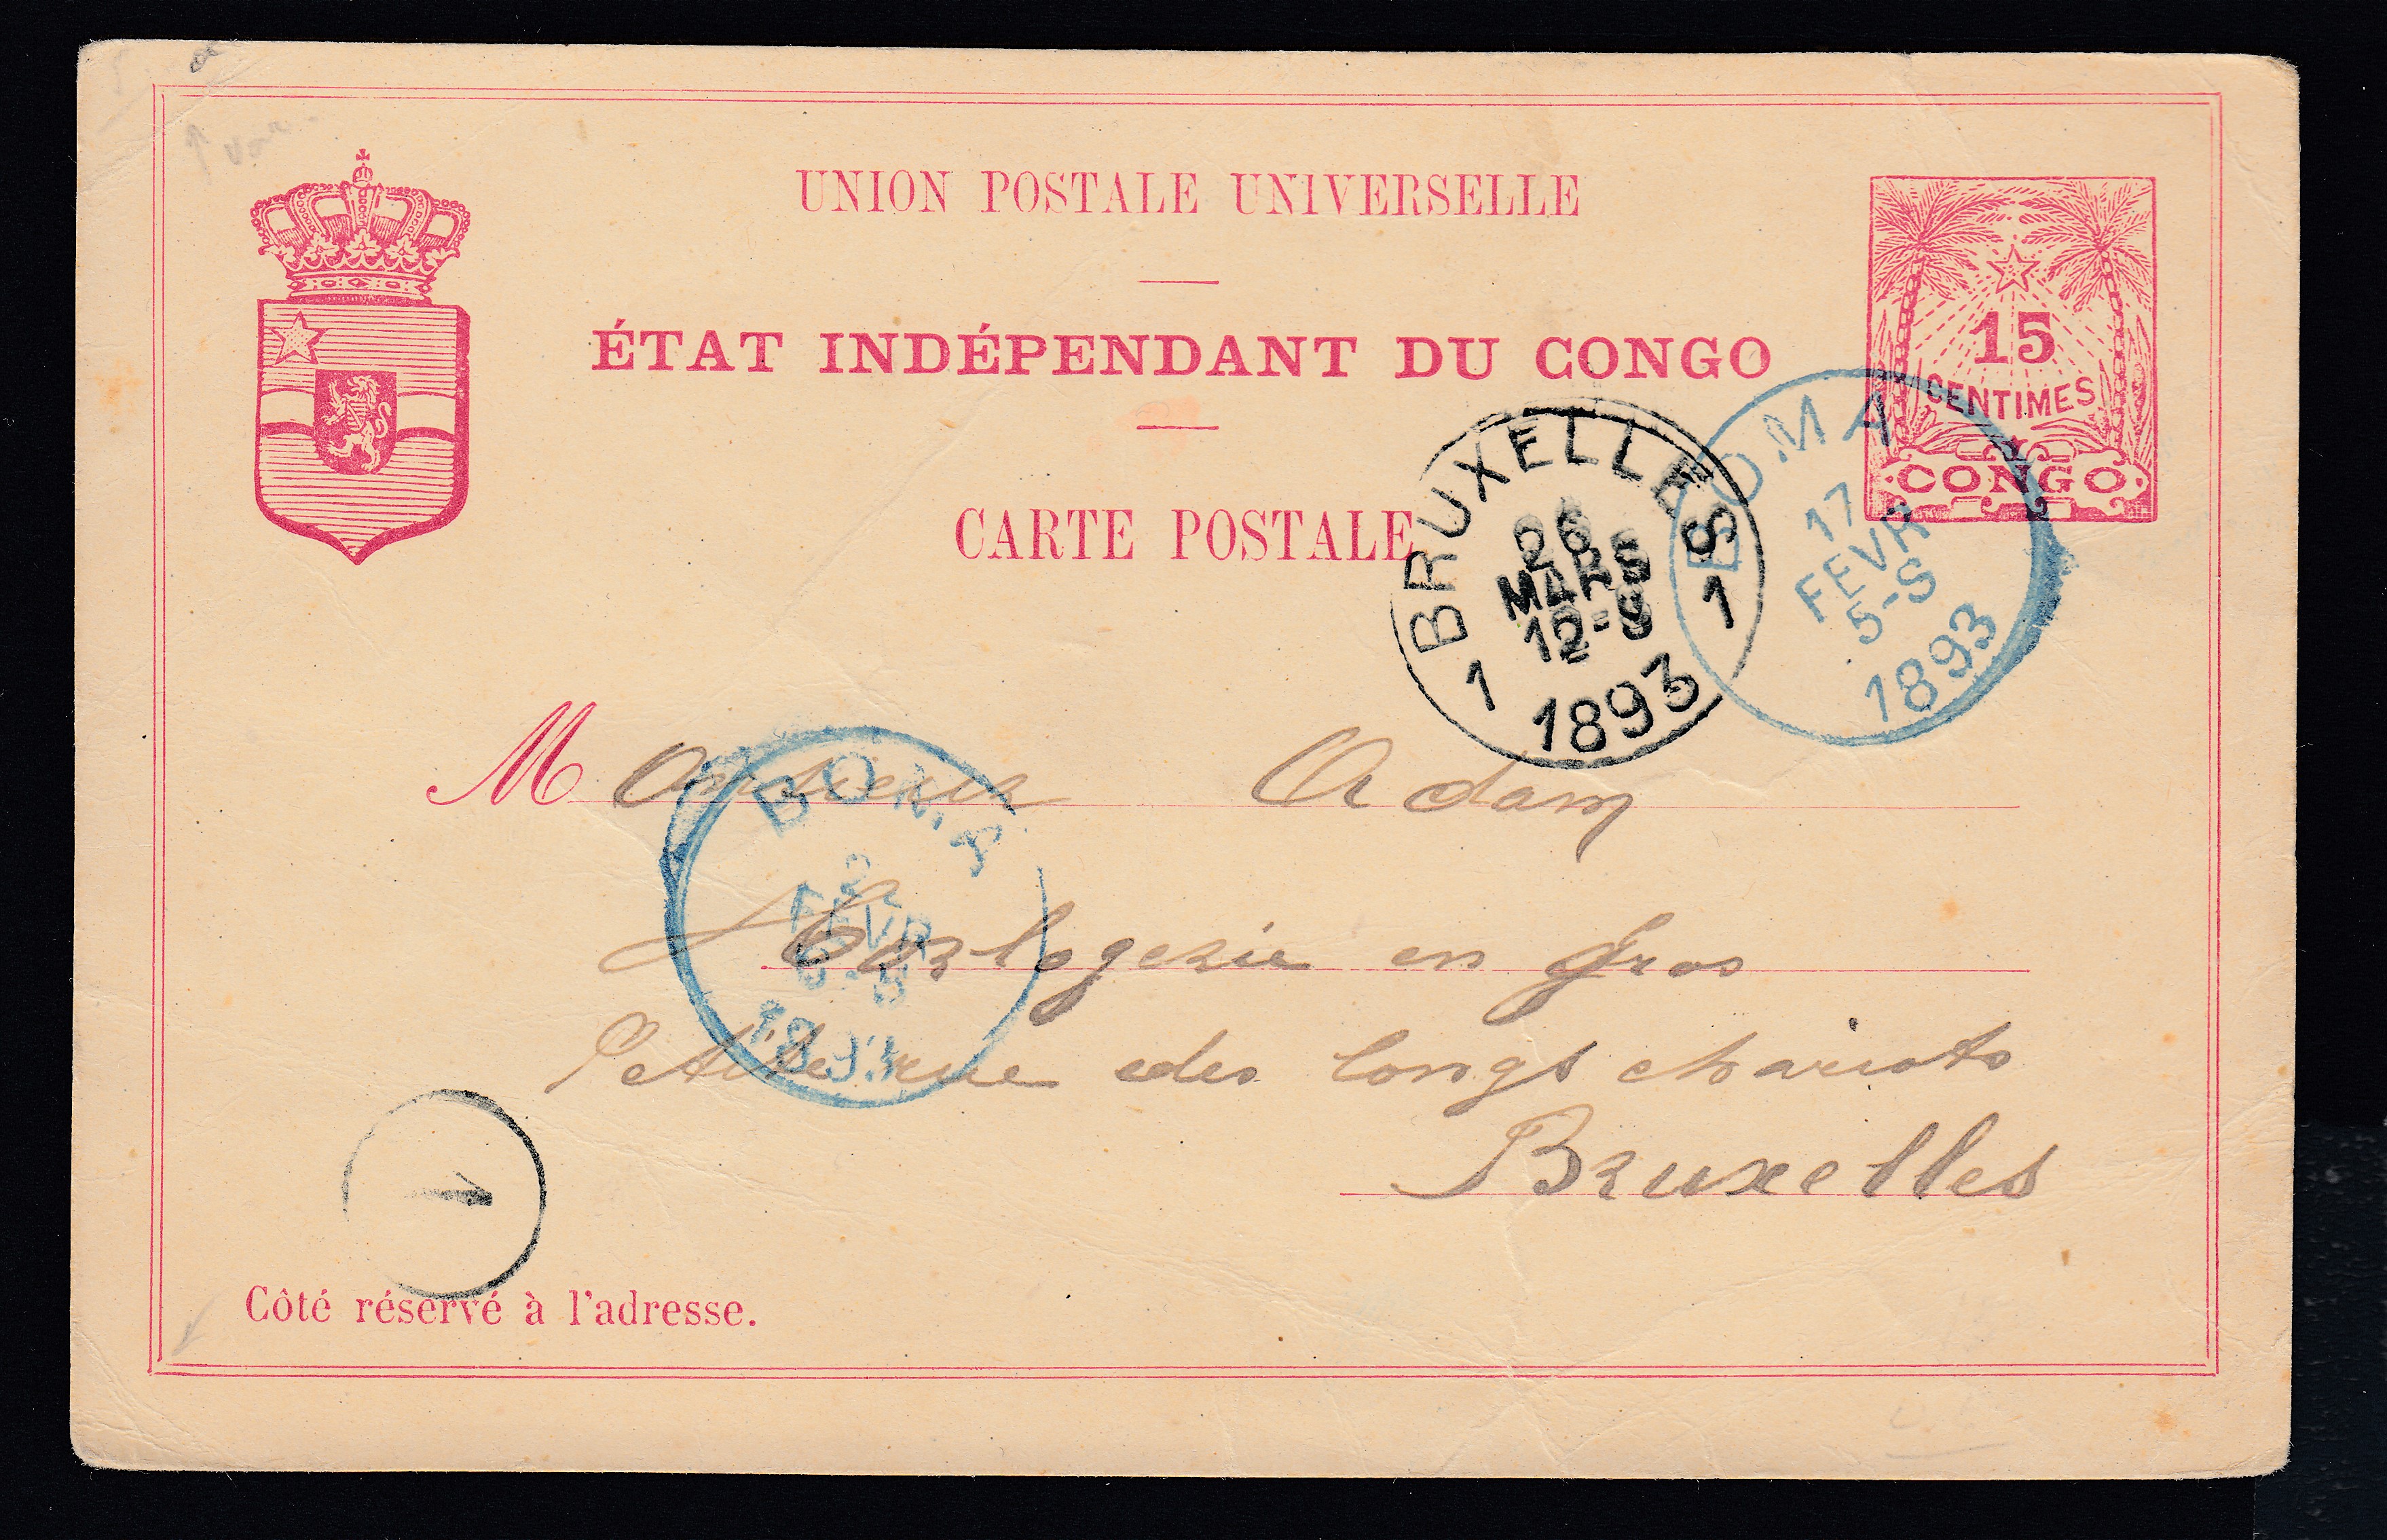 UNION POSTALE UNIVERSELLE
ÉTAT INDÉPENDANT DU CONGO
CARTE POSTALE
15
CENTIMES
CONGO
BRUXELLES
26
MARS
1893
1 1
BOMA
17
FEVR
5-S
1893
Monsieur Adam
BOMA
FEVR
1893
Horlogerie en Gros
Petite rue des longs chariots
Bruxelles
1
Côté réservé à l'adresse.